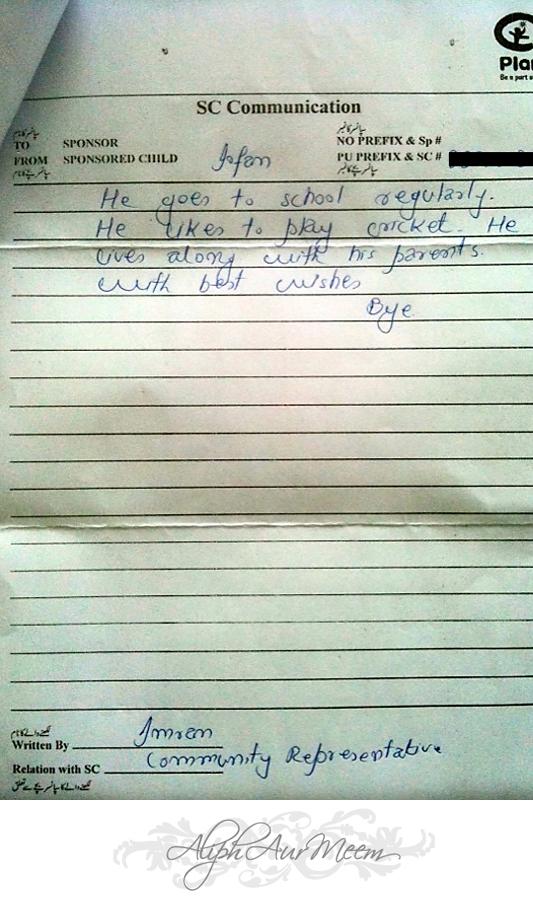 Plan
Be a part o
SC Communication
TO SPONSOR
NO PREFIX & Sp #
FROM SPONSORED CHILD Irfan
PU PREFIX & SC #
He goes to school regularly.
He likes to play cricket. He
lives along with his parents.
with best wishes
Bye
Written By Imran
Relation with SC Community Representative
Aliph Aur Meem